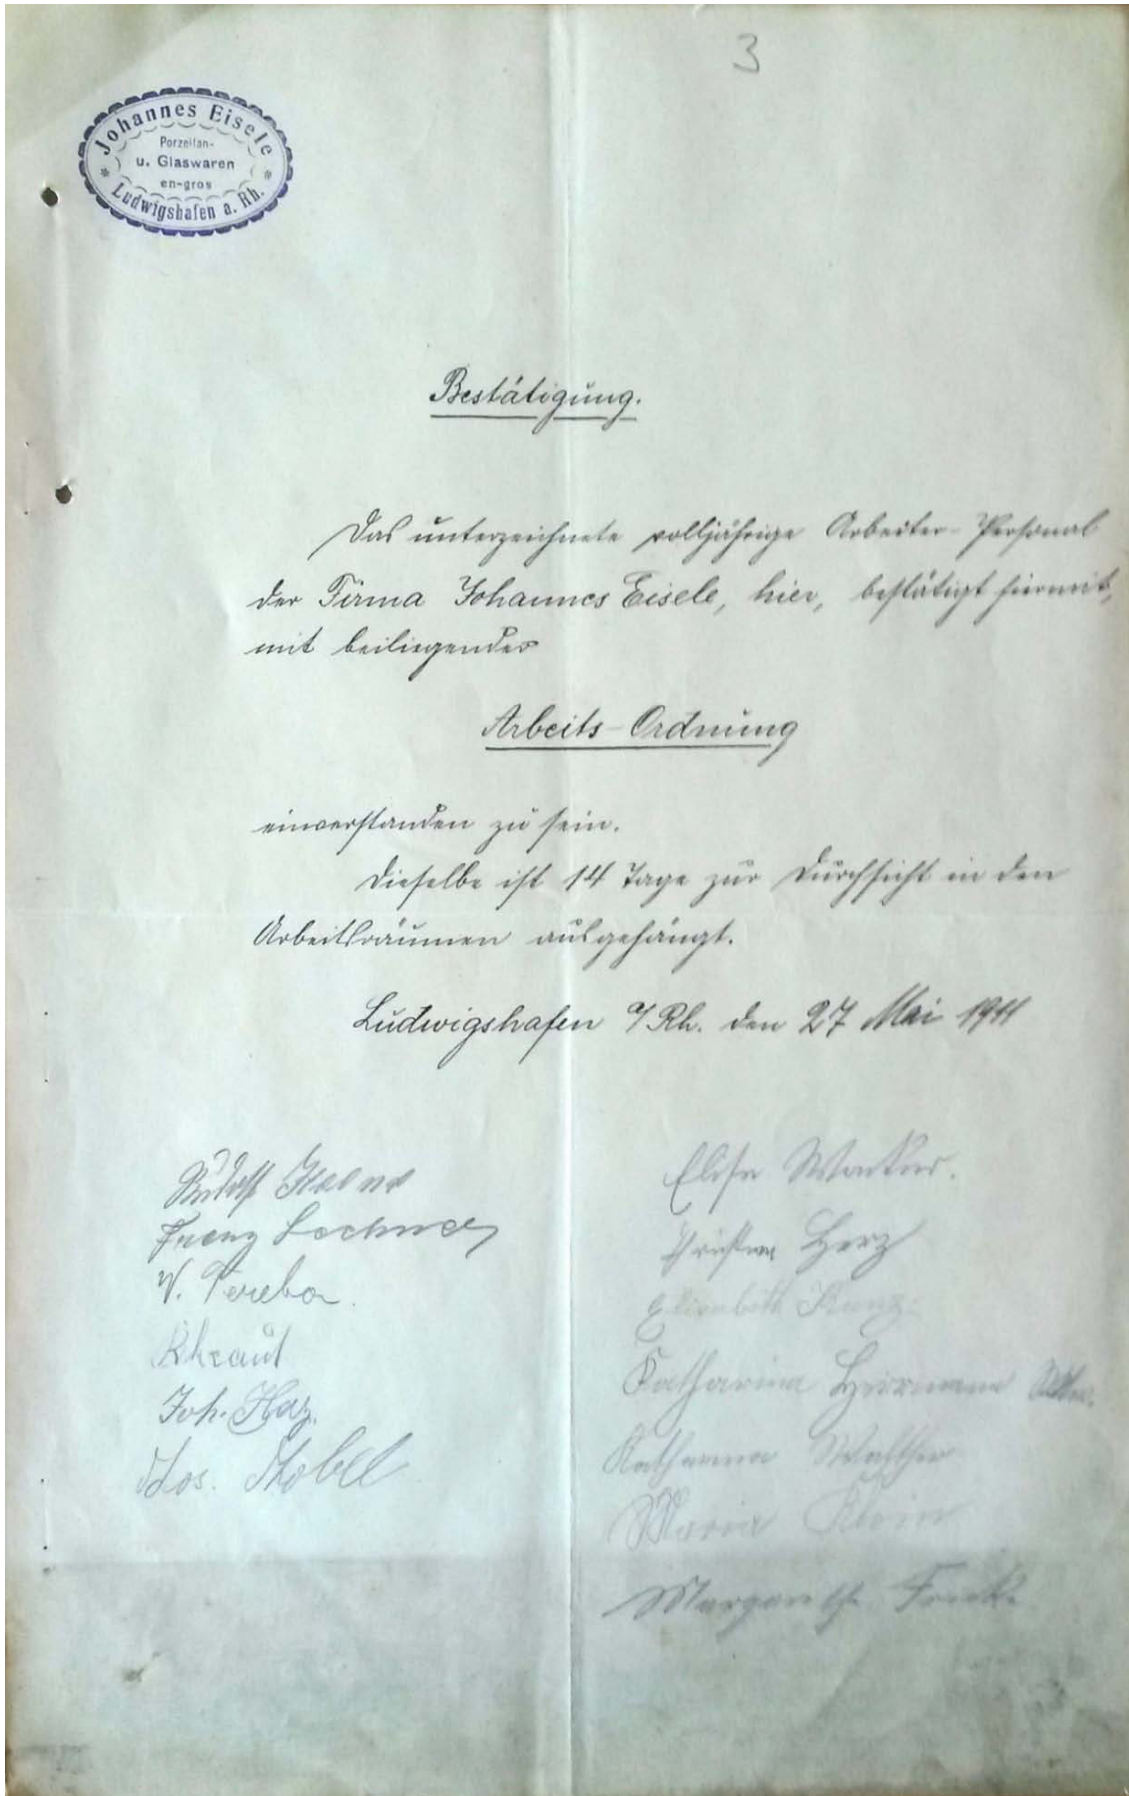 3
Johannes Eisele
Porzellan-
u. Glaswaren
en-gros
Ludwigshafen a. Rh.
Bestätigung.
Das unterzeichnete volljährige Arbeiter-Personal
der Firma Johannes Eisele, hier, bestätigt hiermit,
mit beiliegender
Arbeits-Ordnung
einverstanden zu sein.
Dieselbe ist 14 Tage zur Durchsicht in den
Arbeitsräumen ausgehängt.
Ludwigshafen a/Rh. den 27 Mai 1911
Rudolf
Franz Lochner
V.
Joh.
Jos.
Elise
Herz
Elisabeth Kunz
Katharina Herrmann
Katharina Walther
Maria Klein
Margarethe